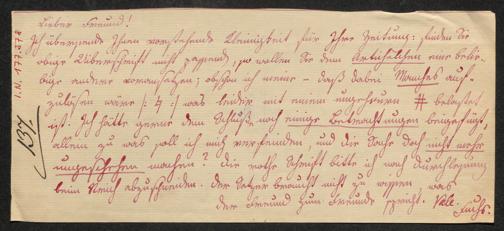 Lieber Freund!
Ich übersende Ihnen vorstehende Kleinigkeit für Ihre Zeitung; finden Sie
obige Überschrift nicht passend, so wollen Sie dem Artikelchen eine belie-
bige andere voransetzen; obschon ich meine – daß dabei Manches auf-
zulösen wäre :/: was leider mit einem ungeheuren # belastet
ist! Ich hätte gerne dem Schluß noch einige Betrachtungen beigefügt,
allein zu was soll ich mich verfeinden, und die Sache doch nicht mehr
ungeschehen machen? Die rothe Schrift bitte ich nach Durchlesung
beim Strich abzuschneiden. Der Setzer braucht nicht zu wissen, was
der Freund zum Freunde spricht. Vale.
Fuchs.
I.N. 177378
137